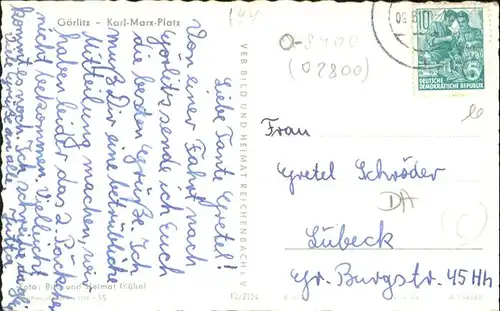 Görlitz - Karl-Marx-Platz
Liebe Tante Gretel!
Von einer Fahrt nach
Görlitz sende ich Euch
die besten Grüße. Ich
muß Dir eine betrübliche
Mitteilung machen, wir
haben leider das 2. Päckchen
nicht bekommen. Vielleicht
kommt es noch. Ich schreibe
Foto: Bild und Heimat (Kühn)
VEB BILD UND HEIMAT REICHENBACH i. V.
12/2124
O-8900
(02800)
10
DEUTSCHE
DEMOKRATISCHE REPUBLIK
Frau
Gretel Schröder
DA
Lübeck
Gr. Burgstr. 45 Hh